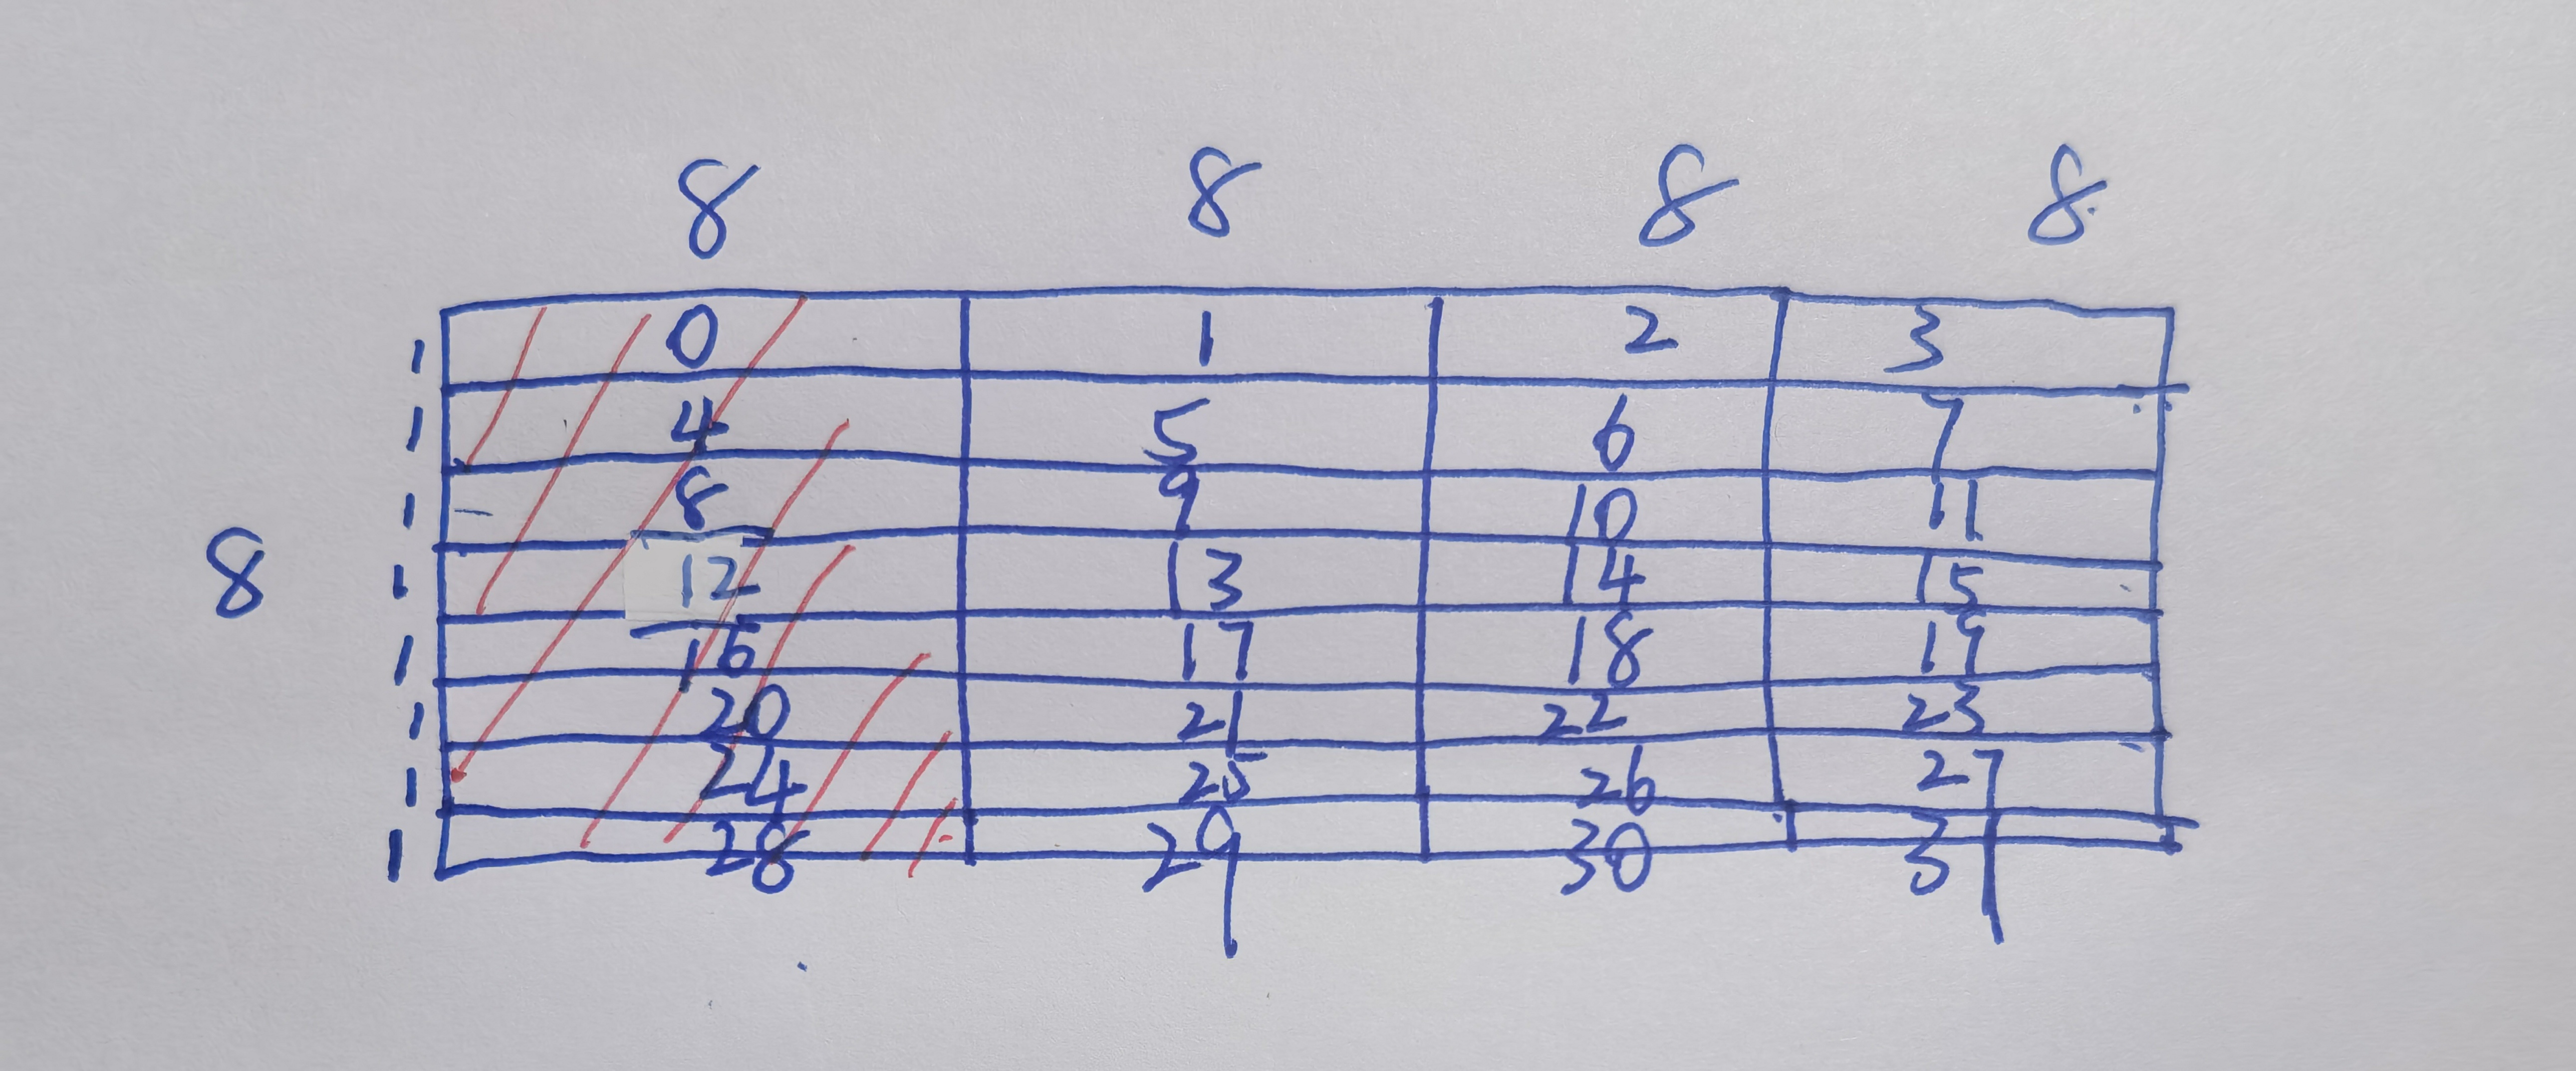 8 8 8 8
1 0 1 2 3
1 4 5 6 7
1 8 9 10 11
8 1 12 13 14 15
1 16 17 18 19
1 20 21 22 23
1 24 25 26 27
1 28 29 30 31